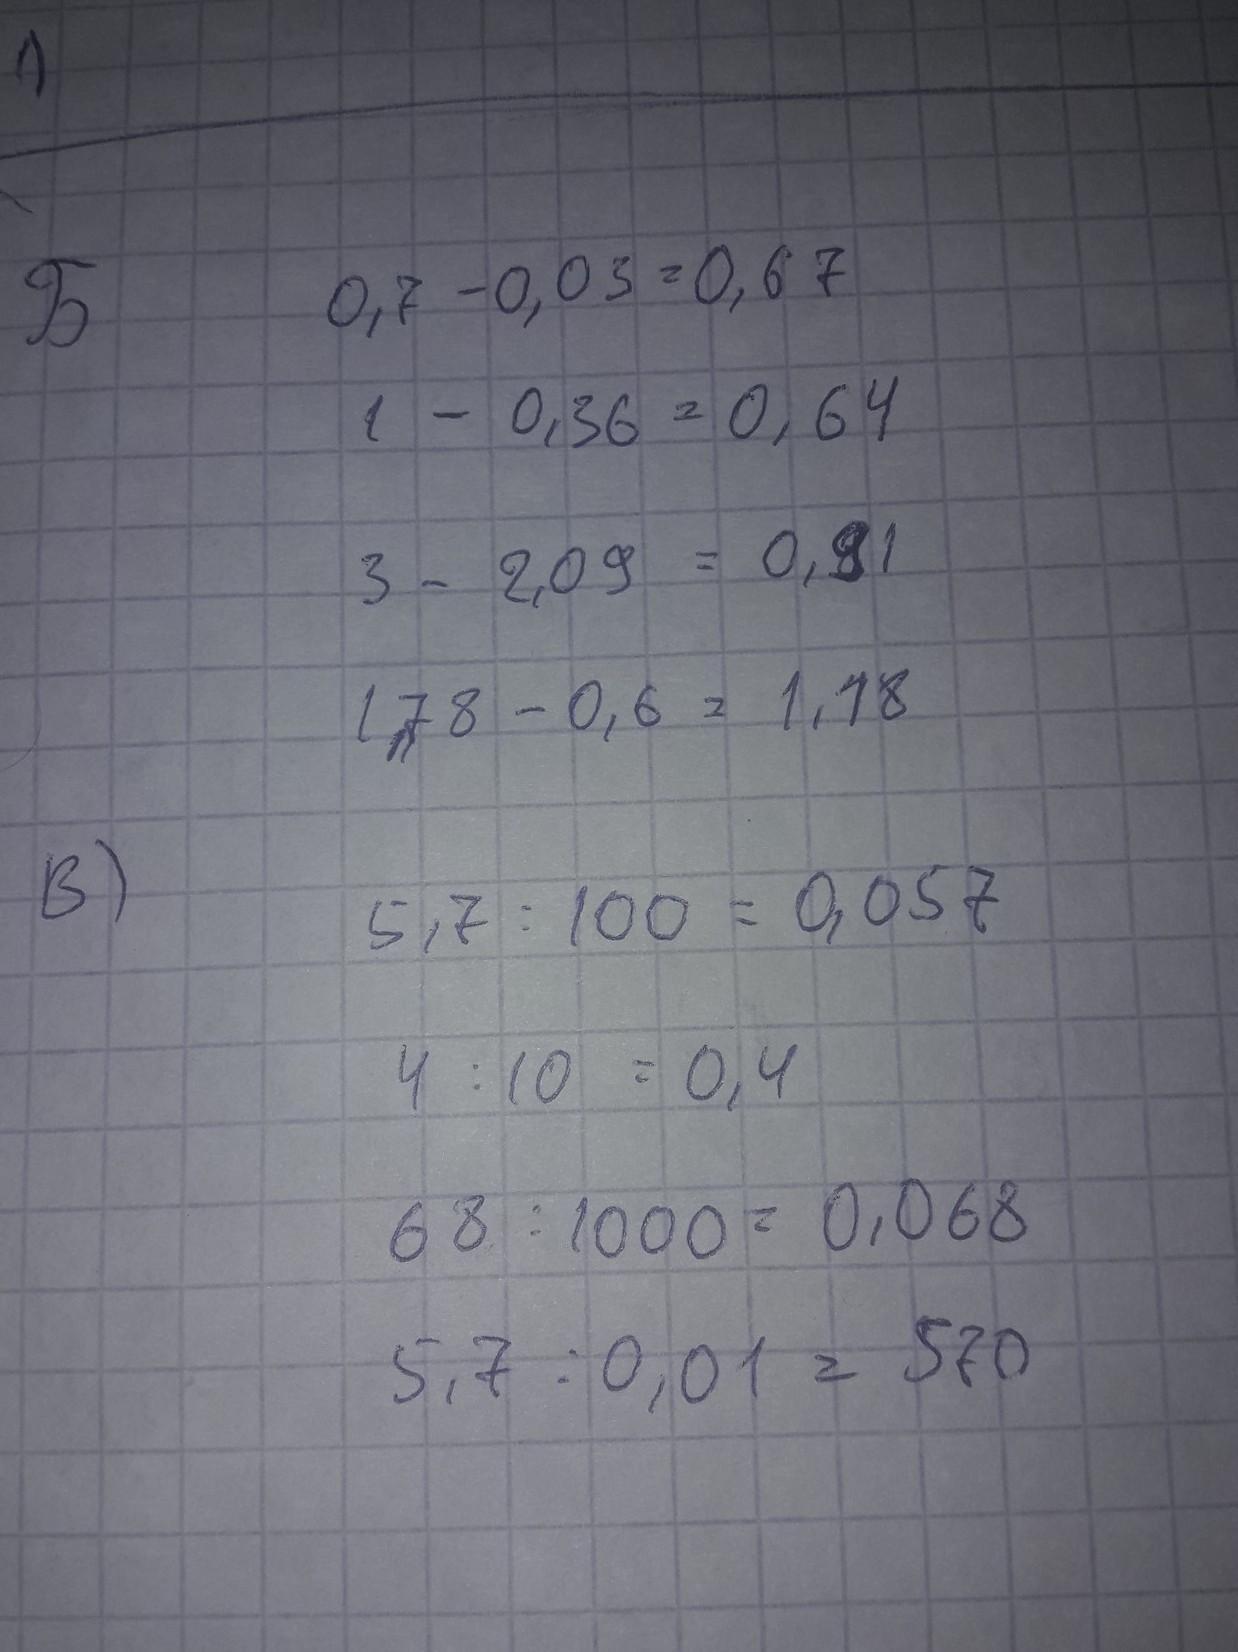 1)
Б 0,7 - 0,03 = 0,67
1 - 0,36 = 0,64
3 - 2,09 = 0,91
1,78 - 0,6 = 1,18
В) 5,7 : 100 = 0,057
4 : 10 = 0,4
68 : 1000 = 0,068
5,7 : 0,01 = 570